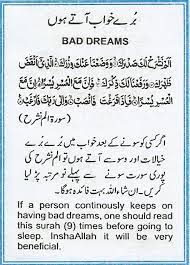 بُرے خواب آتے ہوں
BAD DREAMS
اَلَمْ نَشْرَحْ لَكَ صَدْرَكَ وَوَضَعْنَا عَنْكَ وِزْرَكَ الَّذِيْ اَنْقَضَ
ظَهْرَكَ وَرَفَعْنَا لَكَ ذِكْرَكَ فَاِنَّ مَعَ الْعُسْرِ يُسْرًا اِنَّ مَعَ
الْعُسْرِ يُسْرًا فَاِذَا فَرَغْتَ فَانْصَبْ وَاِلٰى رَبِّكَ فَارْغَبْ
(سورۃ الم نشرح)
اگر کسی کو سونے کے بعد خواب میں بُرے بُرے
خیالات اور وسوسے آتے ہوں تو الم نشرح کی
پوری سورت سونے سے پہلے نو مرتبہ پڑھ لیا
کریں۔ ان شاء اللہ بہت فائدہ ہوگا۔
If a person continously keeps on
having bad dreams, one should read
this surah (9) times before going to
sleep. InshaAllah it will be very
beneficial.